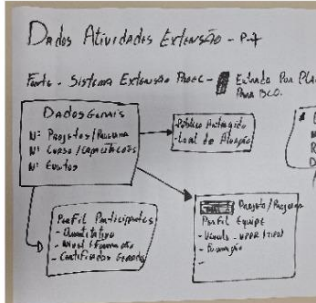 Dados Atividades Extensão - P-7
Fonte - Sistema Extensão PROEC -
Extrado Por PLA
Para BCO.
Dados Gerais
Nº Projetos/Programa
Nº Curso/
Nº Eventos
Público Atingido
- Local de Atuação
Perfil Participantes
- Quantitativo
- Nível Formação
- Certificados Gerados
Projeto/Programa
Perfil Equipe
- Vínculo - UFPR
- Formação
-